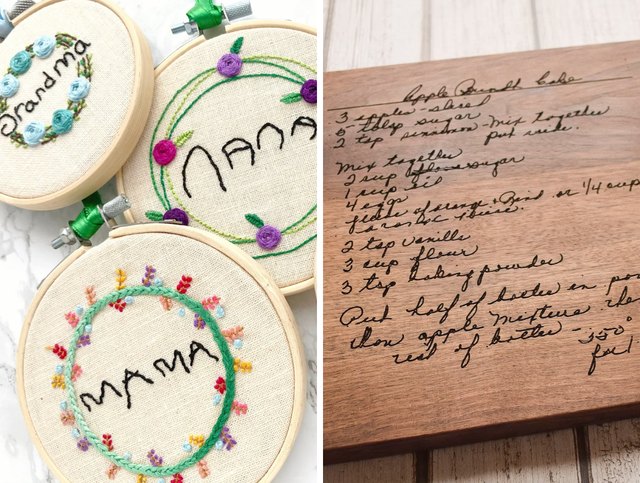 Grandma
NANA
MAMA
Apple Bundt Cake
3 apples - sliced
5 tblsp sugar
2 tsp cinnamon - Mix together
put aside.
Mix together
2 cup sugar
1 cup oil
4 eggs
juice of orange + Rind or 1/4 cup
2 tsp vanilla
3 cup flour
3 tsp baking powder
Put half of batter in pan
then apple mixture
rest of batter - 350°
for 1